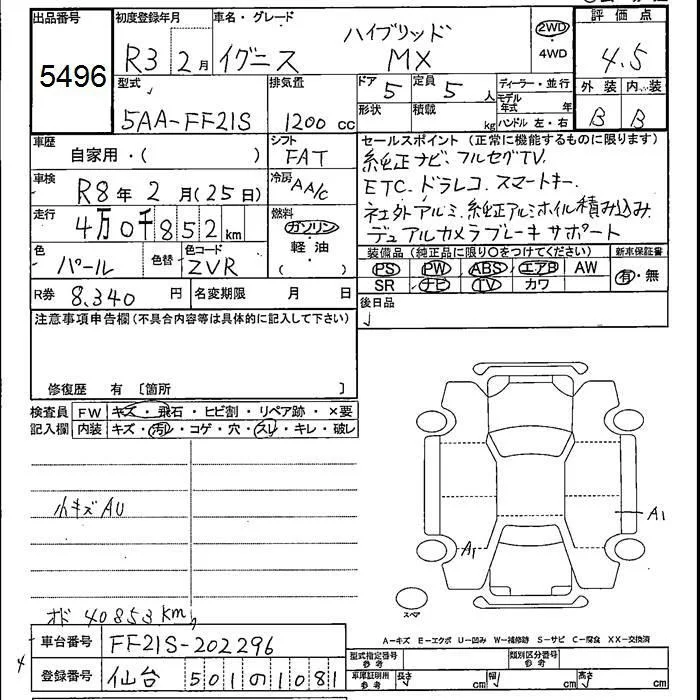 出品番号
5496
初度登録年月
R3 2月
車名・グレード
イグニス ハイブリッド MX
2WD・4WD
評価点
4.5
外装 内装
B B
型式
5AA-FF21S
排気量
1200 cc
ドア 5
定員 5 人
形状
積載 kg
ディーラー・並行
モデル年式 年
ハンドル 左・右
車歴
自家用・( )
シフト
FAT
車検
R8年 2月(25日)
冷房
AA/c
走行
4万0千852km
燃料
ガソリン
軽油
( )
色
パール
色替
色コード
ZVR
R券 8,340 円
名変期限 月 日
セールスポイント (正常に機能するものに限ります)
純正ナビ、フルセグTV.
ETC. ドラレコ. スマートキー.
社外アルミ、純正アルミホイル積み込み
デュアルカメラブレーキサポート
装備品 (純正品に限り○をつけてください)
PS PW ABS エアB AW
SR ナビ TV カワ
新車保証書
有・無
後日品
注意事項申告欄(不具合内容等は具体的に記入して下さい)
修復歴 有 [箇所 ]
検査員記入欄
FW キズ・飛石・ヒビ割・リペア跡・×要
内装 キズ・汚レ・コゲ・穴・スレ・キレ・破レ
小キズAU
オド 40853km
A1
A1
スペア
A-キズ E-エクボ U-凹み W-補修跡 S-サビ C-腐食 XX-交換済
車台番号 FF21S-202296
登録番号 仙台 501の1081
型式指定番号 参考
類別区分番号 参考
車庫証明用 参考
長さ cm 幅 cm 高さ cm